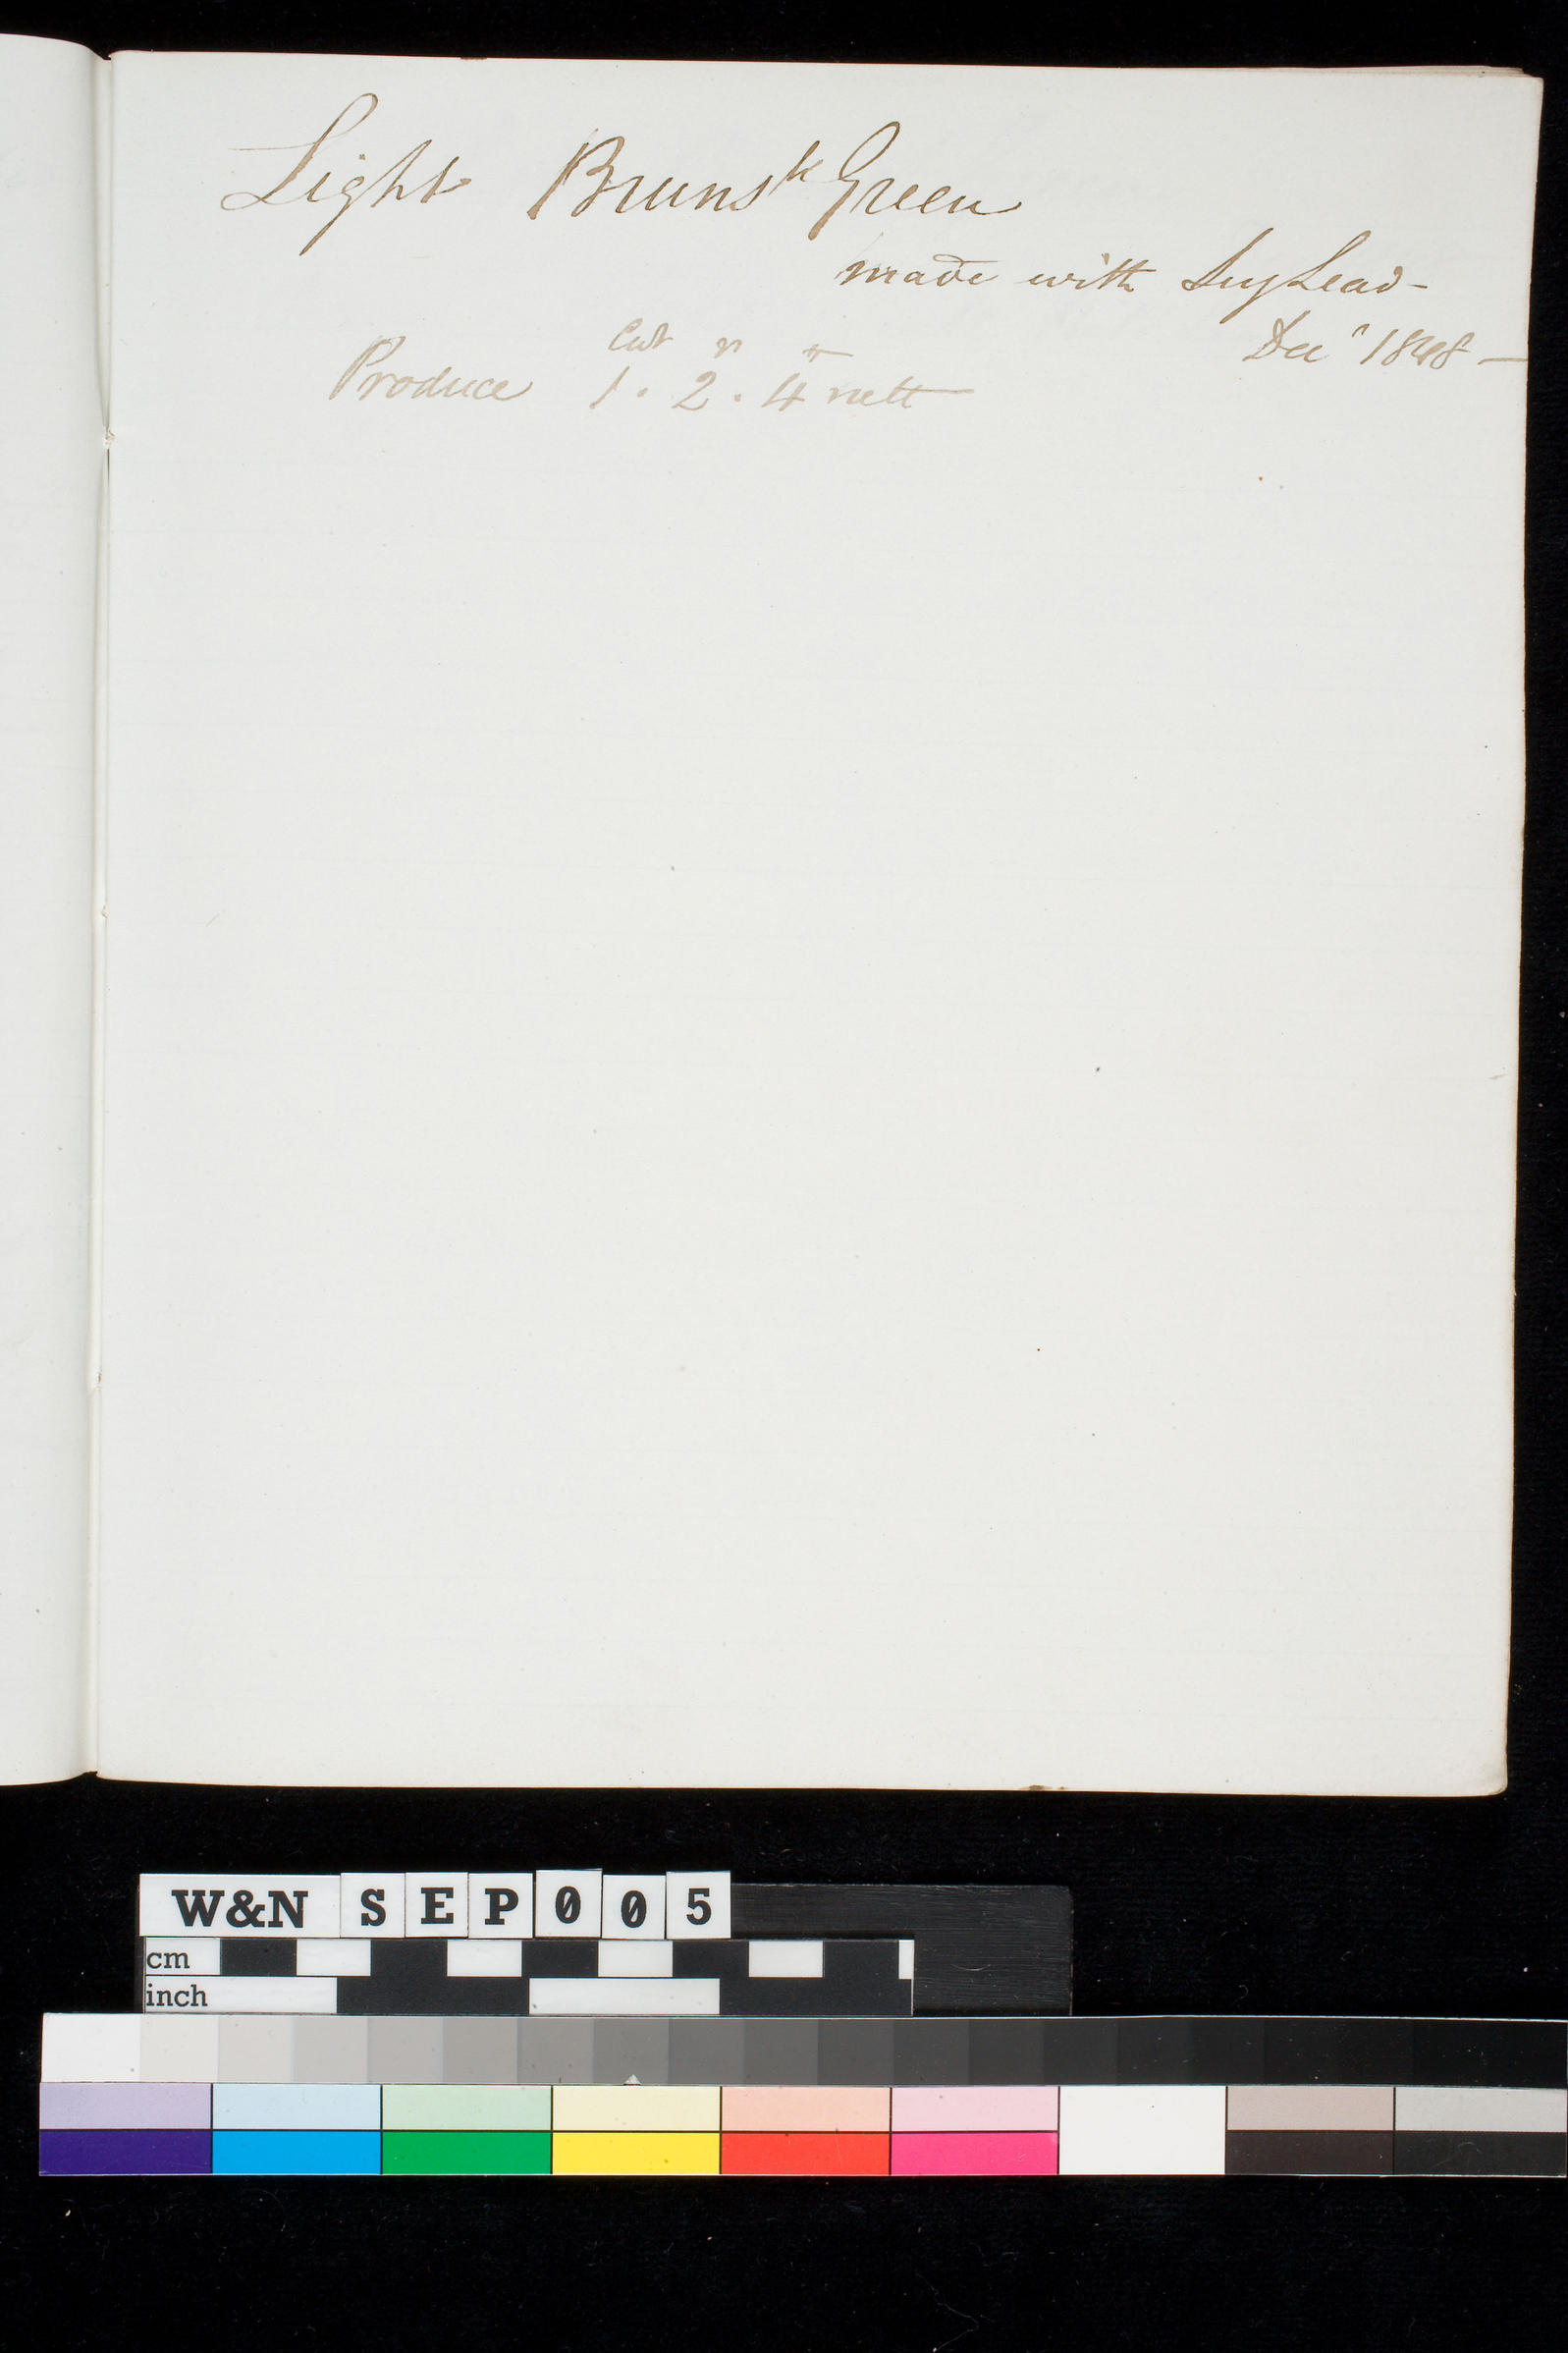 Light Bruns^k Green
made with Sug Lead -
Dec^r 1848 —
Cwt qr lb
Produce 1 . 2 . 4 nett
W&N SEP005
cm
inch